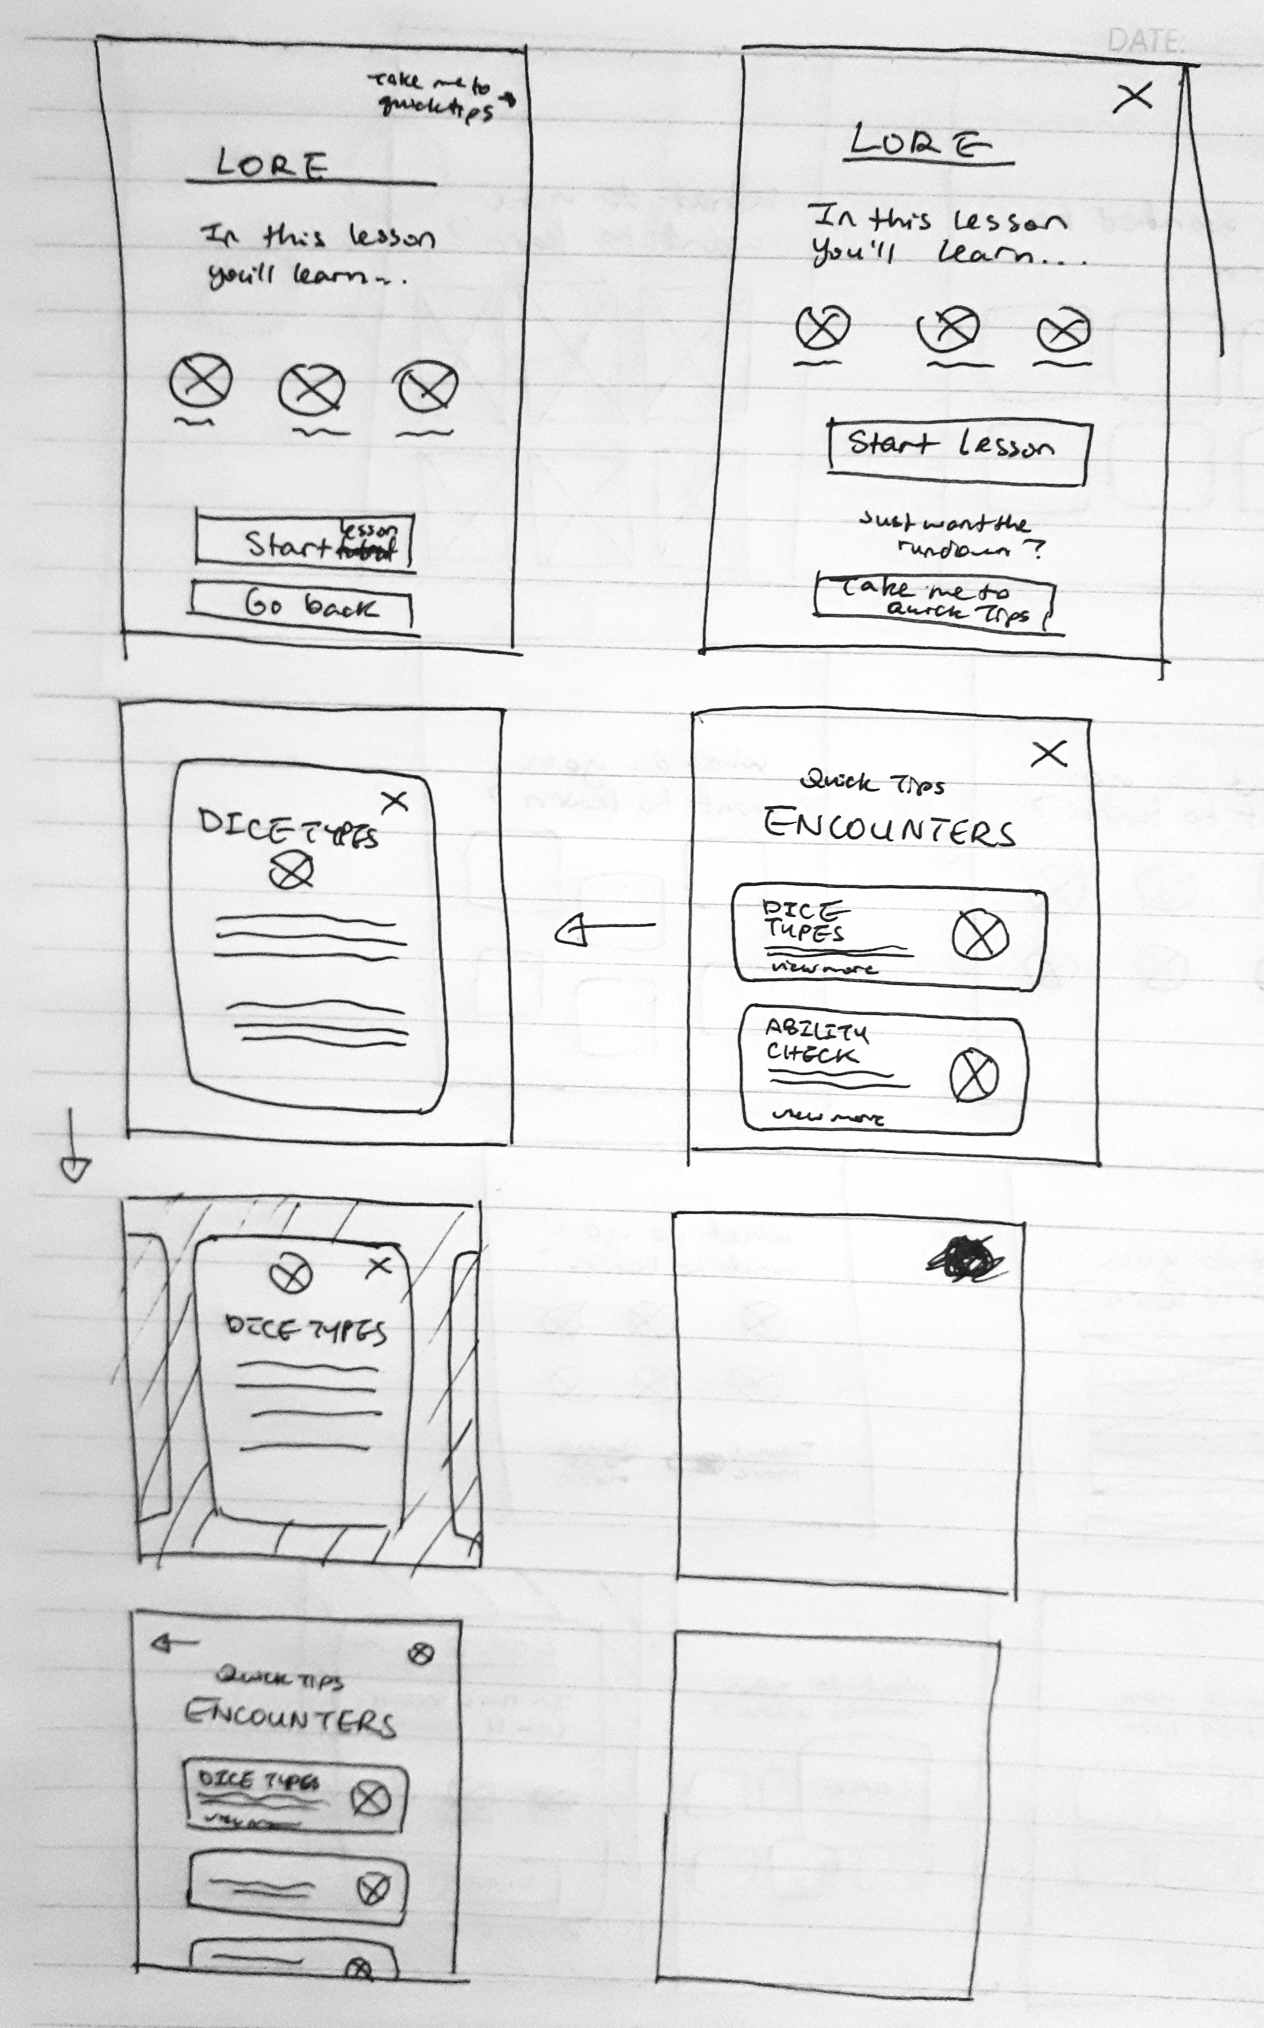 DATE:
Take me to
quick tips →
LORE
In this lesson
you'll learn...
Start lesson
Go back
X
LORE
In this lesson
you'll learn....
Start Lesson
Just want the
rundown?
Take me to
Quick Tips
X
DICE TYPES
X
Quick Tips
ENCOUNTERS
DICE
TYPES
view more
ABILITY
CHECK
view more
X
DICE TYPES
Quick Tips
ENCOUNTERS
DICE TYPES